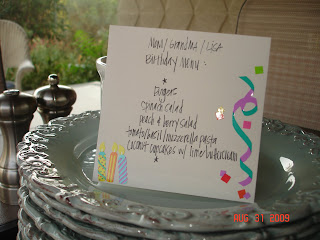 Mom / Grandma / Lisa
Birthday Menu :
*
Burgers
Spinach Salad
peach & berry Salad
tomato/basil/mozzarella pasta
Coconut cupcakes w/ lime buttercream
*
AUG 31 2009